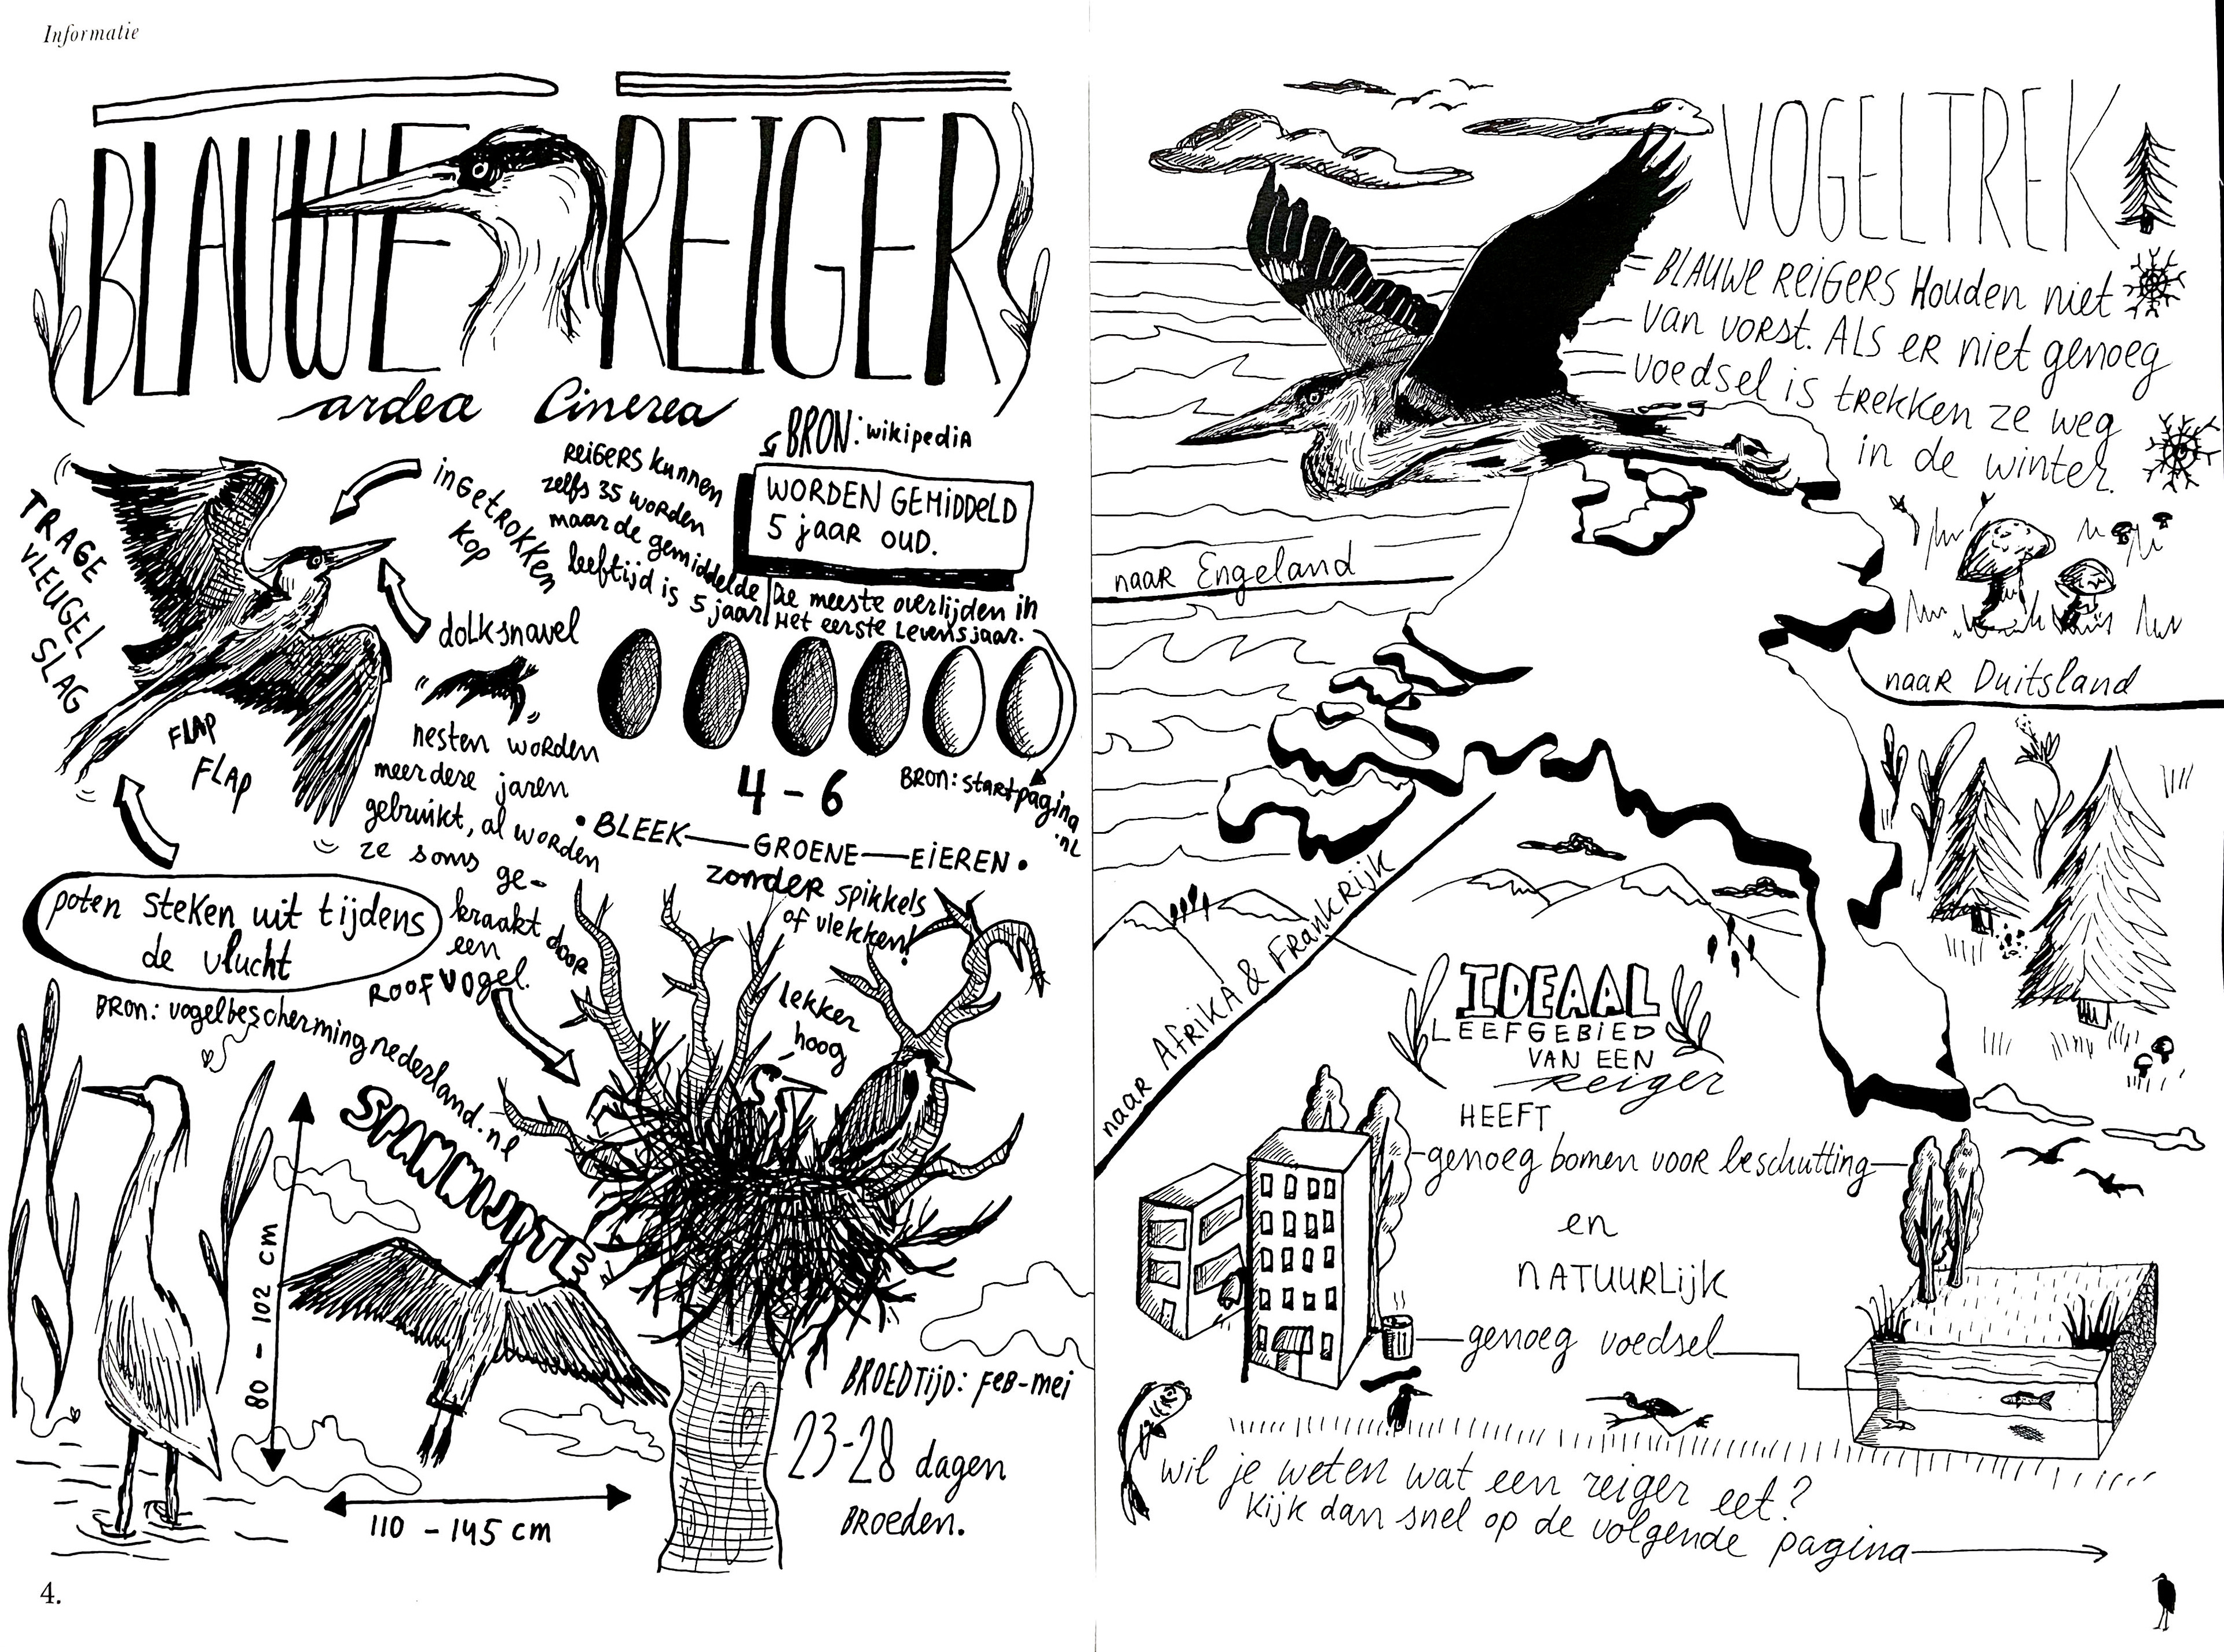 Informatie
BLAUWE REIGER
ardea Cinerea
BRON: wikipediA
WORDEN GEMIDDELD
5 jaar oud.
REIGERS kunnen
zelfs 35 worden
maar de gemiddelde
leeftijd is 5 jaar
De meeste overlijden in
Het eerste Levensjaar.
BRON: startpagina
.nl
inGetrokken
kop
dolksnavel
TRAGE
VLEUGEL
SLAG
FLAP
FLAP
nesten worden
meerdere jaren
gebruikt, al worden
ze soms ge-
kraakt door
een
ROOFVOGEL.
4 - 6
• BLEEK — GROENE — EIEREN •
zonder spikkels
of vlekken!
poten steken uit tijdens
de vlucht
BRON: vogelbeschermingnederland.nl
lekker
hoog
SPANWIJDTE
80 - 102 cm
110 - 145 cm
BROEDTIJD: FEB-mei
23-28 dagen
BROEDEN.
4.
VOGELTREK
BLAUWE REIGERS Houden niet
van vorst. ALS ER niet genoeg
voedsel is trekken ze weg
in de winter.
naar Engeland
naar Duitsland
naar Afrika & Frankrijk
IDEAAL
LEEFGEBIED
VAN EEN
reiger
HEEFT
genoeg bomen voor beschutting
en
NATUURLijk
genoeg voedsel
wil je weten wat een reiger eet?
Kijk dan snel op de volgende pagina